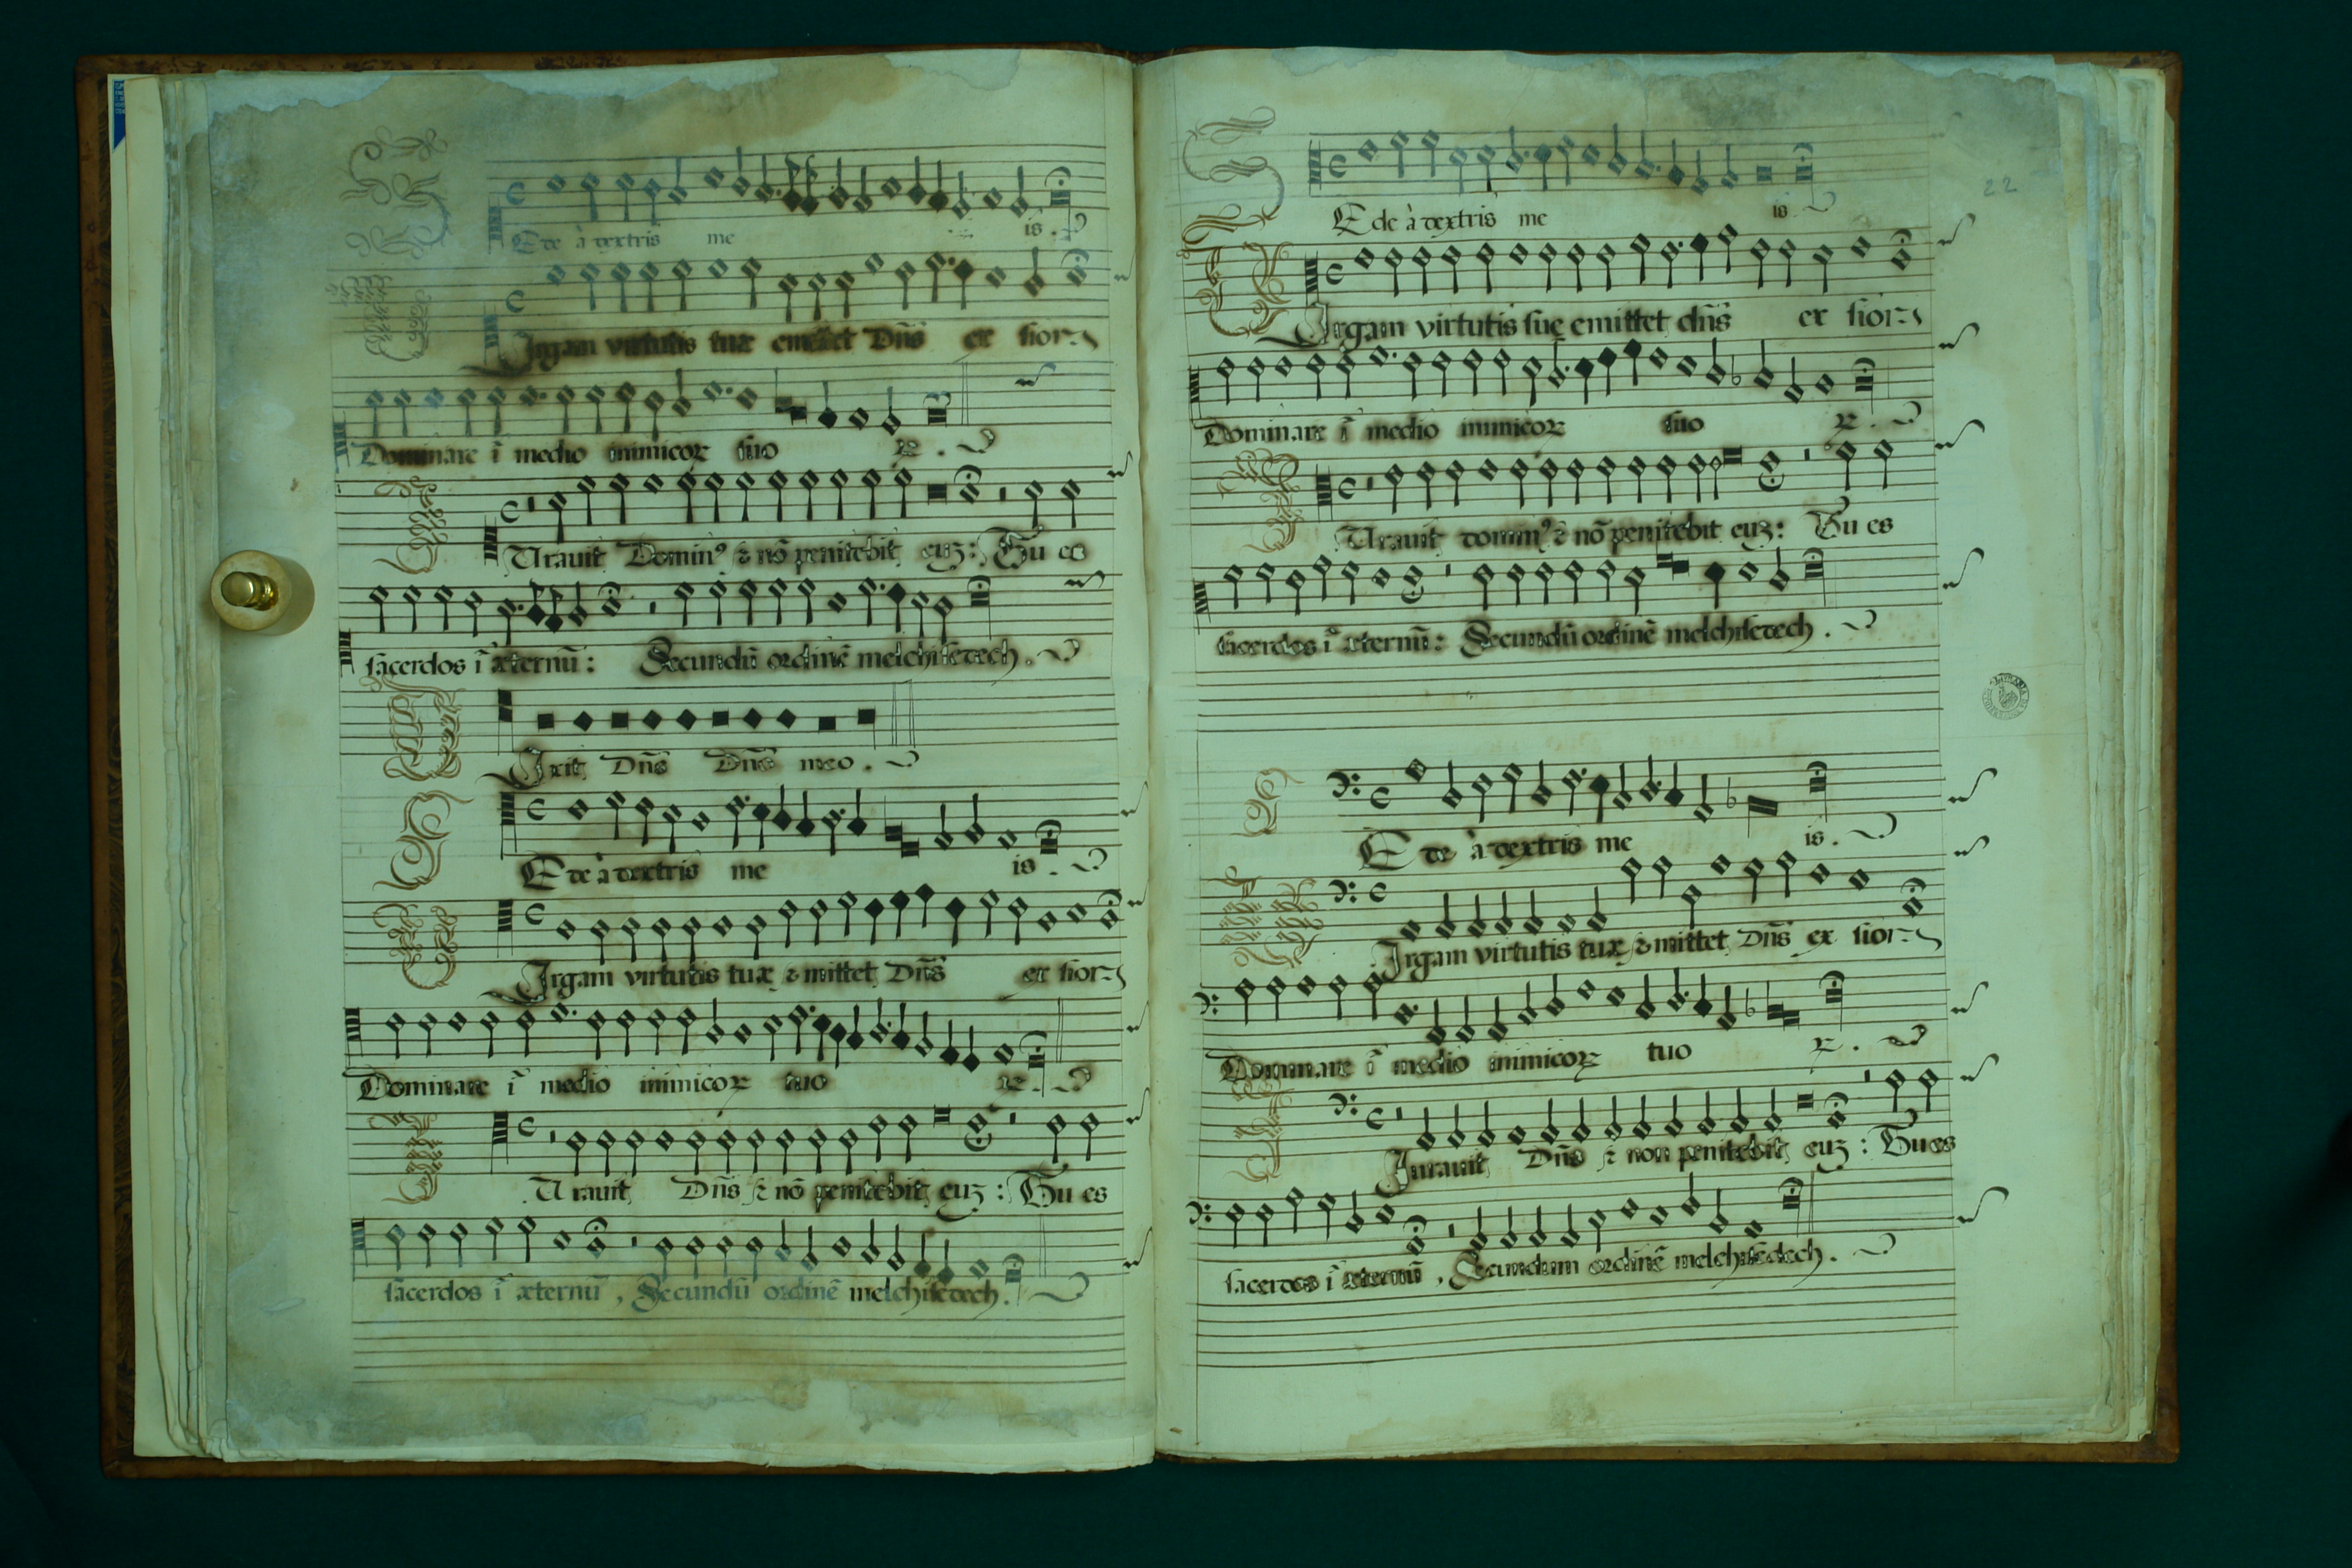 Ede à dextris me is.
Irgam virtutis tuæ emittet Dñs ex sion
Dominare ĩ medio inimicoꝝ tuo ꝝ.
Urauit Dominꝰ & nõ penitebit euʒ: Tu es
sacerdos ĩ æternũ: Secundũ ordinẽ melchisedech.
Ixit Dñs Dño meo.
Ede à dextris me is.
Irgam virtutis tuæ emittet Dñs ex sion
Dominare ĩ medio inimicoꝝ tuo ꝝ.
Urauit Dñs & nõ penitebit euʒ: Tu es
sacerdos ĩ æternũ, Secundũ ordinẽ melchisedech.
22
Ede à dextris me is.
Irgam virtutis suę emittet dñs ex sion
Dominare ĩ medio inimicoꝝ suo ꝝ.
Urauit dominꝰ & nõ penitebit euʒ: Tu es
sacerdos ĩ æternũ: Secundũ ordinẽ melchisedech.
Ede à dextris me is.
Irgam virtutis tuæ emittet Dñs ex sion
Dominare ĩ medio inimicoꝝ tuo ꝝ.
Iurauit Dñs & non penitebit euʒ: Tu es
sacerdos ĩ æternũ, Secundum ordinẽ melchisedech.